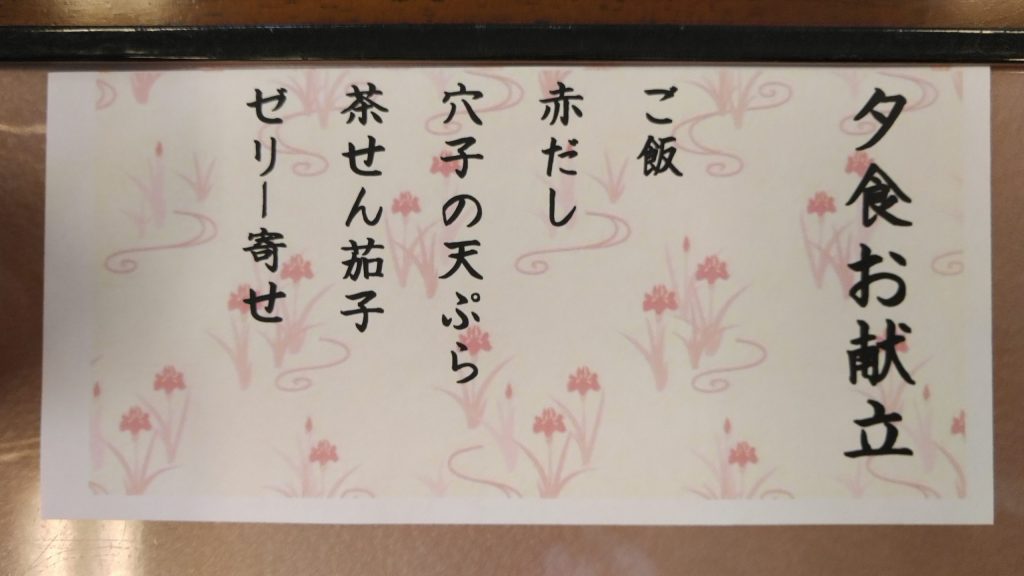 夕食お献立
ご飯
赤だし
穴子の天ぷら
茶せん茄子
ゼリー寄せ